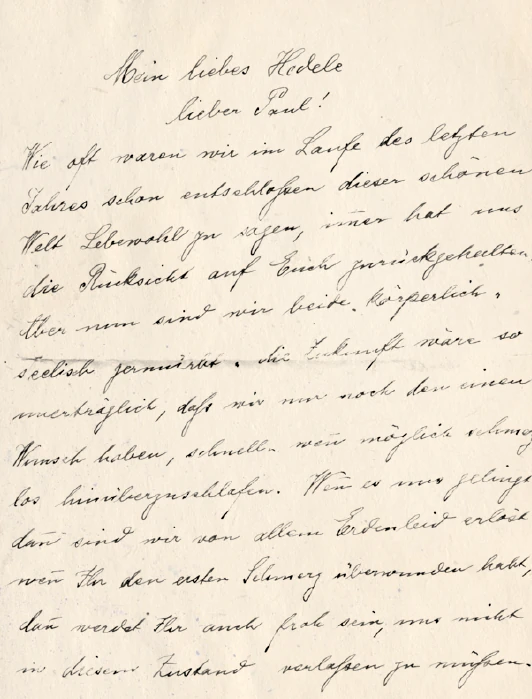 Mein liebes Hedele
lieber Paul!
Wie oft waren wir im Laufe des letzten
Jahres schon entschloßen dieser schönen
Welt Lebewohl zu sagen, im̄er hat uns
die Rücksicht auf Euch zurückgehalten.
Aber nun sind wir beide körperlich.
seelisch zermürbt. die Zukunft wäre so
unerträglich, daß wir nur noch den einen
Wunsch haben, schnell wen̄ möglich schmerz
los hinüberzuschlafen. Wen̄ es uns gelingt
dan̄ sind wir von allem Erdenleid erlöst
wen̄ Ihr den ersten Schmerz überwunden habt,
dan̄ werdet Ihr auch froh sein, uns nicht
in diesem Zustand verlaßen zu müßen.